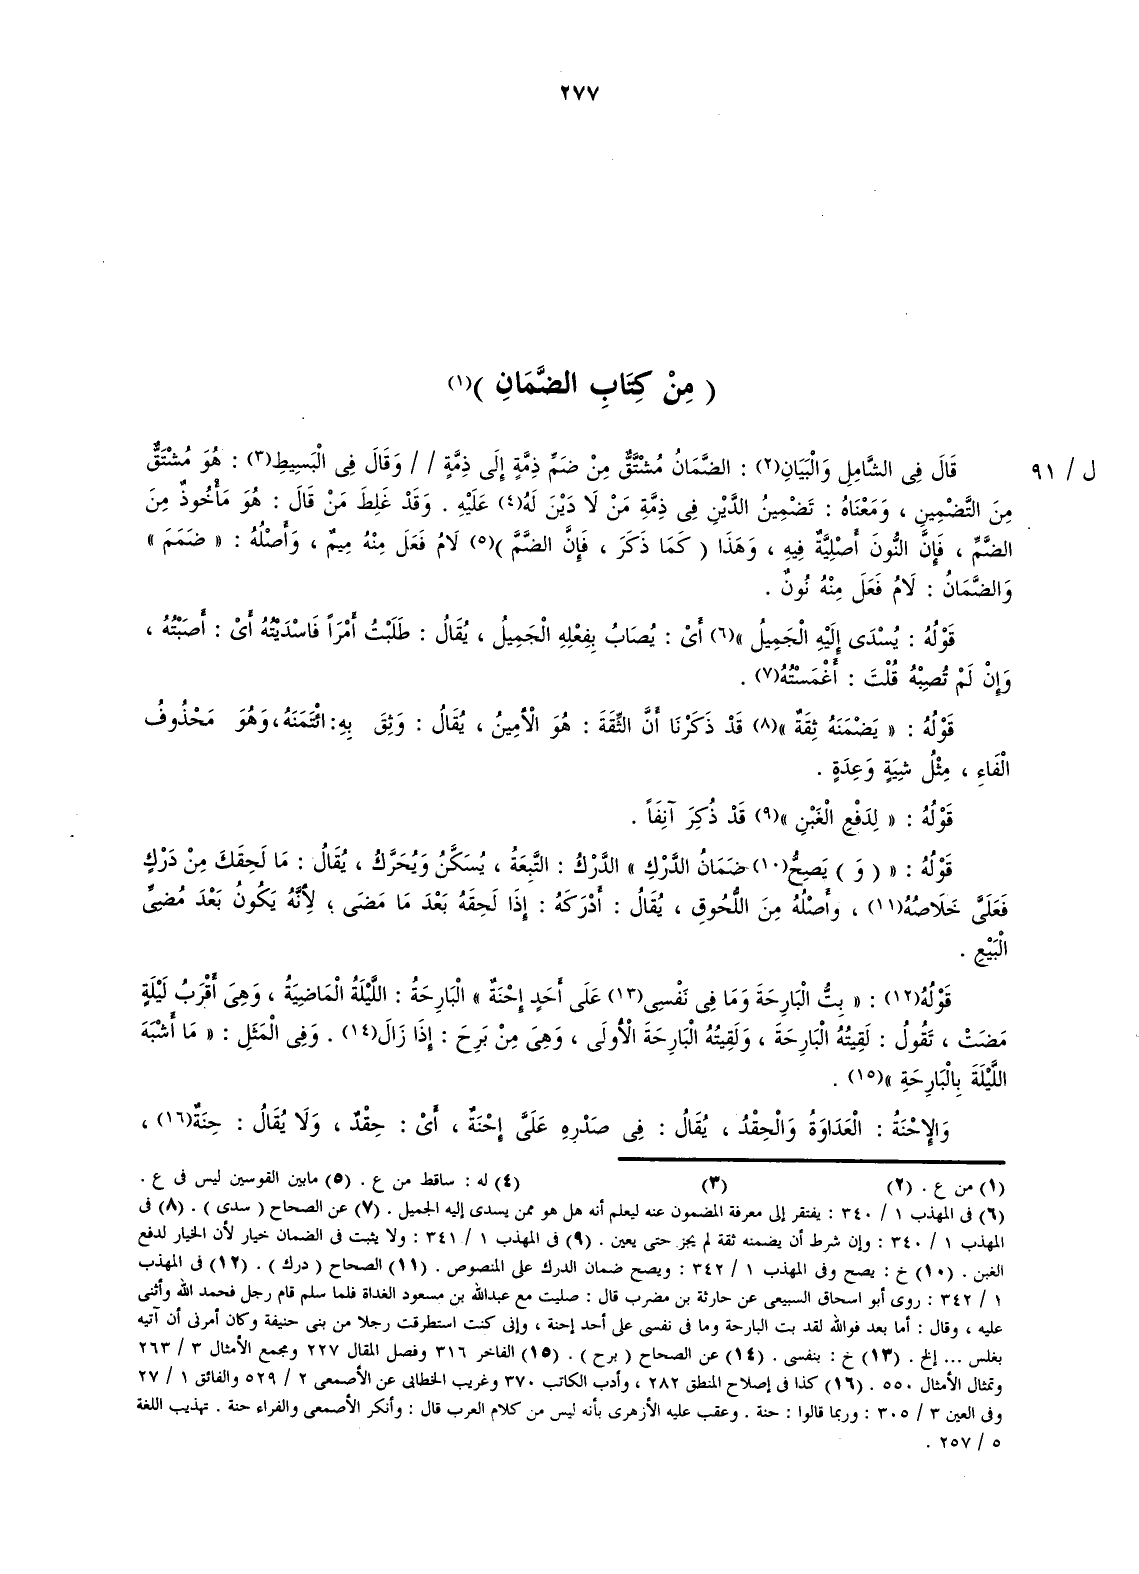 ٢٧٧
( مِنْ كِتَابِ الضَّمَانِ )(١)
ل / ٩١ قَالَ فِى الشَّامِلِ وَالْبَيَانِ(٢) : الضَّمَانُ مُشْتَقٌّ مِنْ ضَمِّ ذِمَّةٍ إِلَى ذِمَّةٍ / / وَقَالَ فِى الْبَسِيطِ(٣) : هُوَ مُشْتَقٌّ
مِنَ التَّضْمِينِ ، وَمَعْنَاهُ : تَضْمِينُ الدَّيْنِ فِى ذِمَّةِ مَنْ لَا دَيْنَ لَهُ(٤) عَلَيْهِ . وَقَدْ غَلِطَ مَنْ قَالَ : هُوَ مَأْخُوذٌ مِنَ
الضَّمِّ ، فَإِنَّ النُّونَ أَصْلِيَّةٌ فِيهِ ، وَهَذَا ( كَمَا ذَكَرَ ، فَإِنَّ الضَّمَّ )(٥) لَامُ فَعَلَ مِنْهُ مِيمٌ ، وَأَصْلُهُ : « ضَمَمَ »
وَالضَّمَانُ : لَامُ فَعَلَ مِنْهُ نُونٌ .
قَوْلُهُ : يُسْدَى إِلَيْهِ الْجَمِيلُ »(٦) أَىْ : يُصَابُ بِفِعْلِهِ الْجَمِيلُ ، يُقَالُ : طَلَبْتُ أَمْرَاً فَاسْدَيْتُهُ أَىْ : أَصَبْتُهُ ،
وَإِنْ لَمْ تُصِبْهُ قُلْتَ : أَغْمَسْتُهُ(٧) .
قَوْلُهُ : « يَضْمَنَهُ ثِقَةٌ »(٨) قَدْ ذَكَرْنَا أَنَّ الثِّقَةَ : هُوَ الْأَمِينُ ، يُقَالُ : وَثِقَ بِهِ: ائْتَمَنَهُ،وَهُوَ مَحْذُوفُ
الْفَاءِ ، مِثْلُ شِيَةٍ وَعِدَةٍ .
قَوْلُهُ : « لِدَفْعِ الْغَبْنِ »(٩) قَدْ ذُكِرَ آنِفَاً .
قَوْلُهُ : « ( وَ ) يَصِحُّ(١٠) ضَمَانُ الدَّرْكِ » الدَّرْكُ : التَّبِعَةُ ، يُسَكَّنُ وَيُحَرَّكُ ، يُقَالُ : مَا لَحِقَكَ مِنْ دَرْكٍ
فَعَلَىَّ خَلَاصُهُ(١١) ، وَأَصْلُهُ مِنَ اللُّحُوقِ ، يُقَالُ : أَدْرَكَهُ : إِذَا لَحِقَهُ بَعْدَ مَا مَضَى ؛ لِأَنَّهُ يَكُونُ بَعْدَ مُضِىِّ
الْبَيْعِ .
قَوْلُهُ(١٢) : « بِتُّ الْبَارِحَةَ وَمَا فِى نَفْسِى(١٣) عَلَى أَحَدٍ إِحْنَةٌ » الْبَارِحَةُ : اللَّيْلَةُ الْمَاضِيَةُ ، وَهِىَ أَقْرَبُ لَيْلَةٍ
مَضَتْ ، تَقُولُ : لَقِيتُهُ الْبَارِحَةَ ، وَلَقِيتُهُ الْبَارِحَةَ الْأُولَى ، وَهِىَ مِنْ بَرِحَ : إِذَا زَالَ(١٤) . وَفِى الْمَثَلِ : « مَا أَشْبَهَ
اللَّيْلَةَ بِالْبَارِحَةِ »(١٥) .
وَالإِحْنَةُ : الْعَدَاوَةُ وَالْحِقْدُ ، يُقَالُ : فِى صَدْرِهِ عَلَىَّ إِحْنَةٌ ، أَىْ : حِقْدٌ ، وَلَا يُقَالُ : حِنَةٌ(١٦) ،
(١) من ع . (٢) (٣) (٤) له : ساقط من ع . (٥) مابين القوسين ليس فى ع .
(٦) فى المهذب ١ / ٣٤٠ : يفتقر إلى معرفة المضمون عنه ليعلم أنه هل هو ممن يسدى إليه الجميل . (٧) عن الصحاح ( سدى ) . (٨) فى
المهذب ١ / ٣٤٠ : وإن شرط أن يضمنه ثقة لم يجز حتى يعين . (٩) فى المهذب ١ / ٣٤١ : ولا يثبت فى الضمان خيار لأن الخيار لدفع
الغبن . (١٠) خ : يصح وفى المهذب ١ / ٣٤٢ : ويصح ضمان الدرك على المنصوص . (١١) الصحاح ( درك ) . (١٢) فى المهذب
١ / ٣٤٢ : روى أبو اسحاق السبيعى عن حارثة بن مضرب قال : صليت مع عبدالله بن مسعود الغداة فلما سلم قام رجل فحمد الله وأثنى
عليه ، وقال : أما بعد فوالله لقد بت البارحة وما فى نفسى على أحد إحنة ، وإنى كنت استطرقت رجلا من بنى حنيفة وكان أمرنى أن آتيه
بغلس ... إلخ . (١٣) خ : بنفسى . (١٤) عن الصحاح ( برح ) . (١٥) الفاخر ٣١٦ وفصل المقال ٢٢٧ ومجمع الأمثال ٣ / ٢٦٣
وتمثال الأمثال ٥٥٠ . (١٦) كذا فى إصلاح المنطق ٢٨٢ ، وأدب الكاتب ٣٧٠ وغريب الخطابى عن الأصمعى ٢ / ٥٢٩ والفائق ١ / ٢٧
وفى العين ٣ / ٣٠٥ : وربما قالوا : حنة . وعقب عليه الأزهرى بأنه ليس من كلام العرب قال : وأنكر الأصمعى والفراء حنة . تهذيب اللغة
٥ / ٢٥٧ .